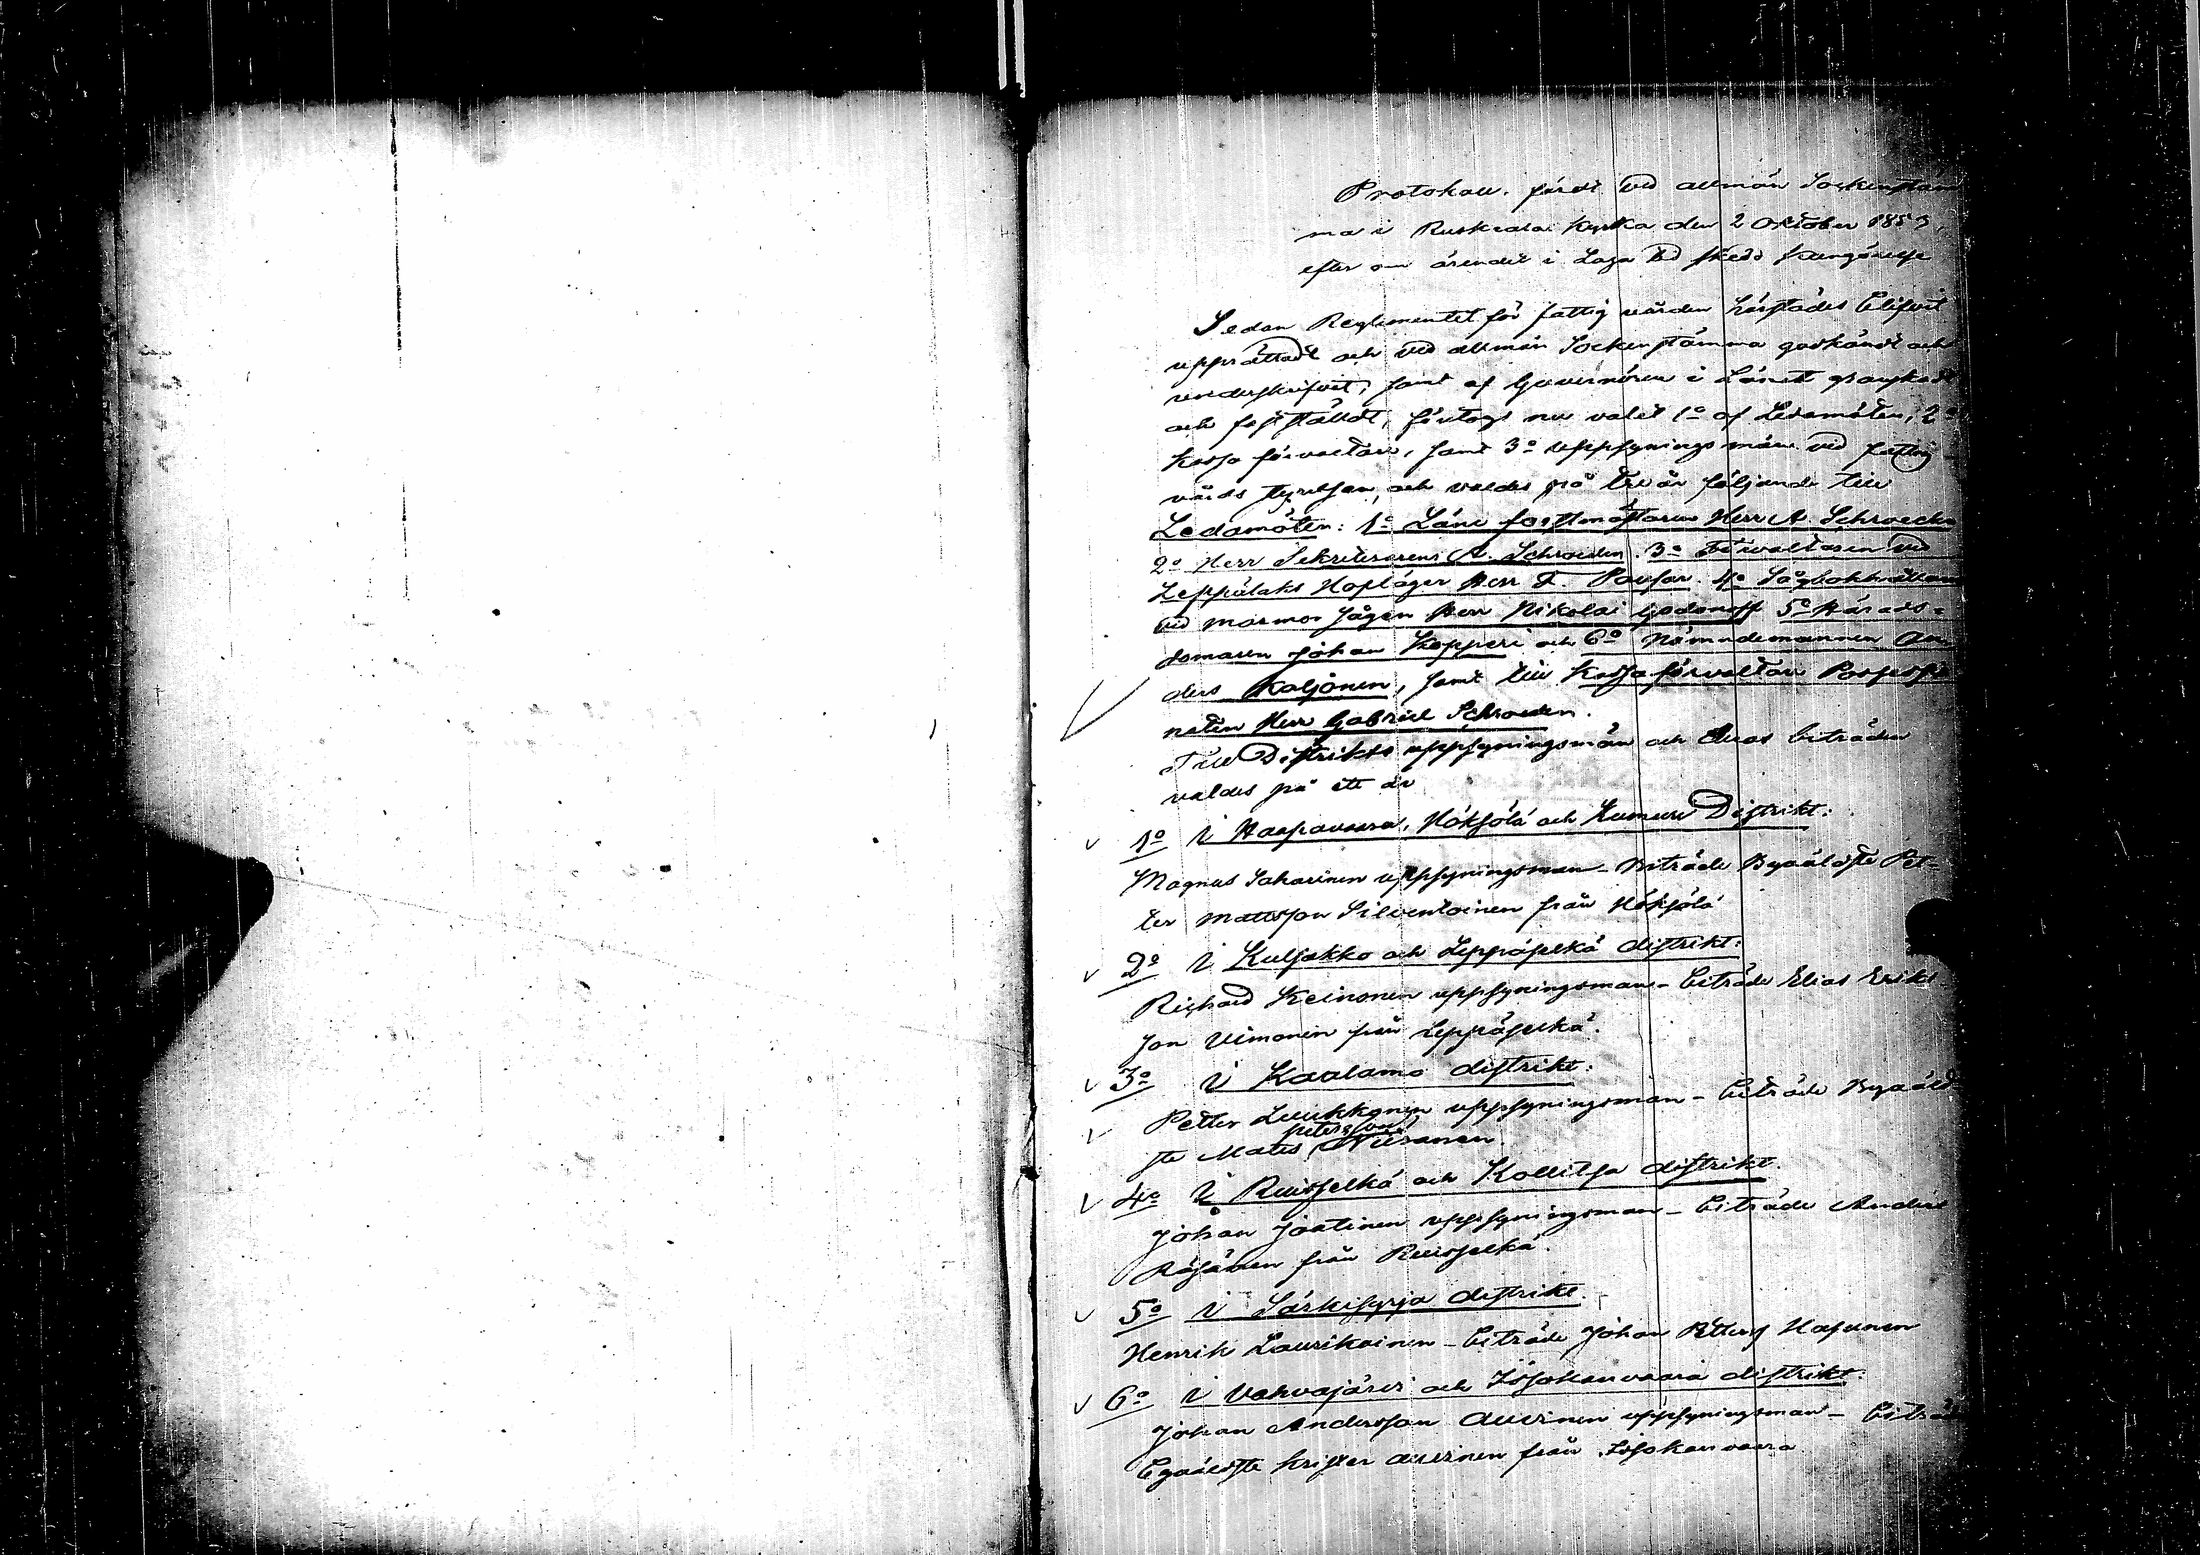 Protokoll, fördt vid allmän Sockenstäm
ma i Ruskeala Kyrka den 2 Oktober 1853,
efter om ärendet i Laga tid skedd kungörelse
Sedan Reglementet för fattig vården härstädes blifvit
upprättadt och vid allmän Sockenstämma godkändt och
underskrifvit, samt af Guvernören i Länet granskadt
och fastställdt, företogs nu valet 1o af Ledamöter, 2o
Kassa förvaltare, samt 3o uppsyningsmän vid fattig
vårds styrelsen, och valdes på tre år följande till
Ledamöter: 1o Läns forstmästaren Herr A. Schroeder
2o Herr Sekreteraren A. Schroeder. 3o Förvaltaren vid
Leppälaks Herr F. 4o
vid marmor sågen Herr Nikolai Godonoff 5o Härads-
domaren Johan Kopperi och 6o Nämndemannen An
ders Koljonen, samt till Kassa förvaltare Possessio
naten Herr Gabriel Schroeder.
Till Distrikts uppsyningsmän och deras biträden
valdes på ett år
1o i Haapavaara, Höksölä och Kumuri Distrikt:
Magnus Saharinen uppsyningsman - Biträde Byaäldste Pet-
ter Mattsson Silventoinen från Höksölä
2o i Kuljakko och Leppäselkä distrikt:
Richard Keinonen uppsyningsman - biträde Elias Eriks
son Uimonen från Leppäselkä.
3o i Kaalamo distrikt:
Petter Luukkonen uppsyningsman - biträde Byaäld
ste Mats Petersson Niiranen
4o i Ruisselkä och Kollitsa distrikt.
Johan Joutinen uppsyningsman - biträde Anders
Räsänen från Ruisselkä.
5o i Särkisyrja distrikt.
Henrik Laurikainen - biträde Johan Petters Hasunen
6o i Vahvajärvi och Sosokanvaara distrikt:
Johan Andersson Auvinen uppsyningsman - biträde
Byaäldste Krister Auvinen från Sosokanvaara